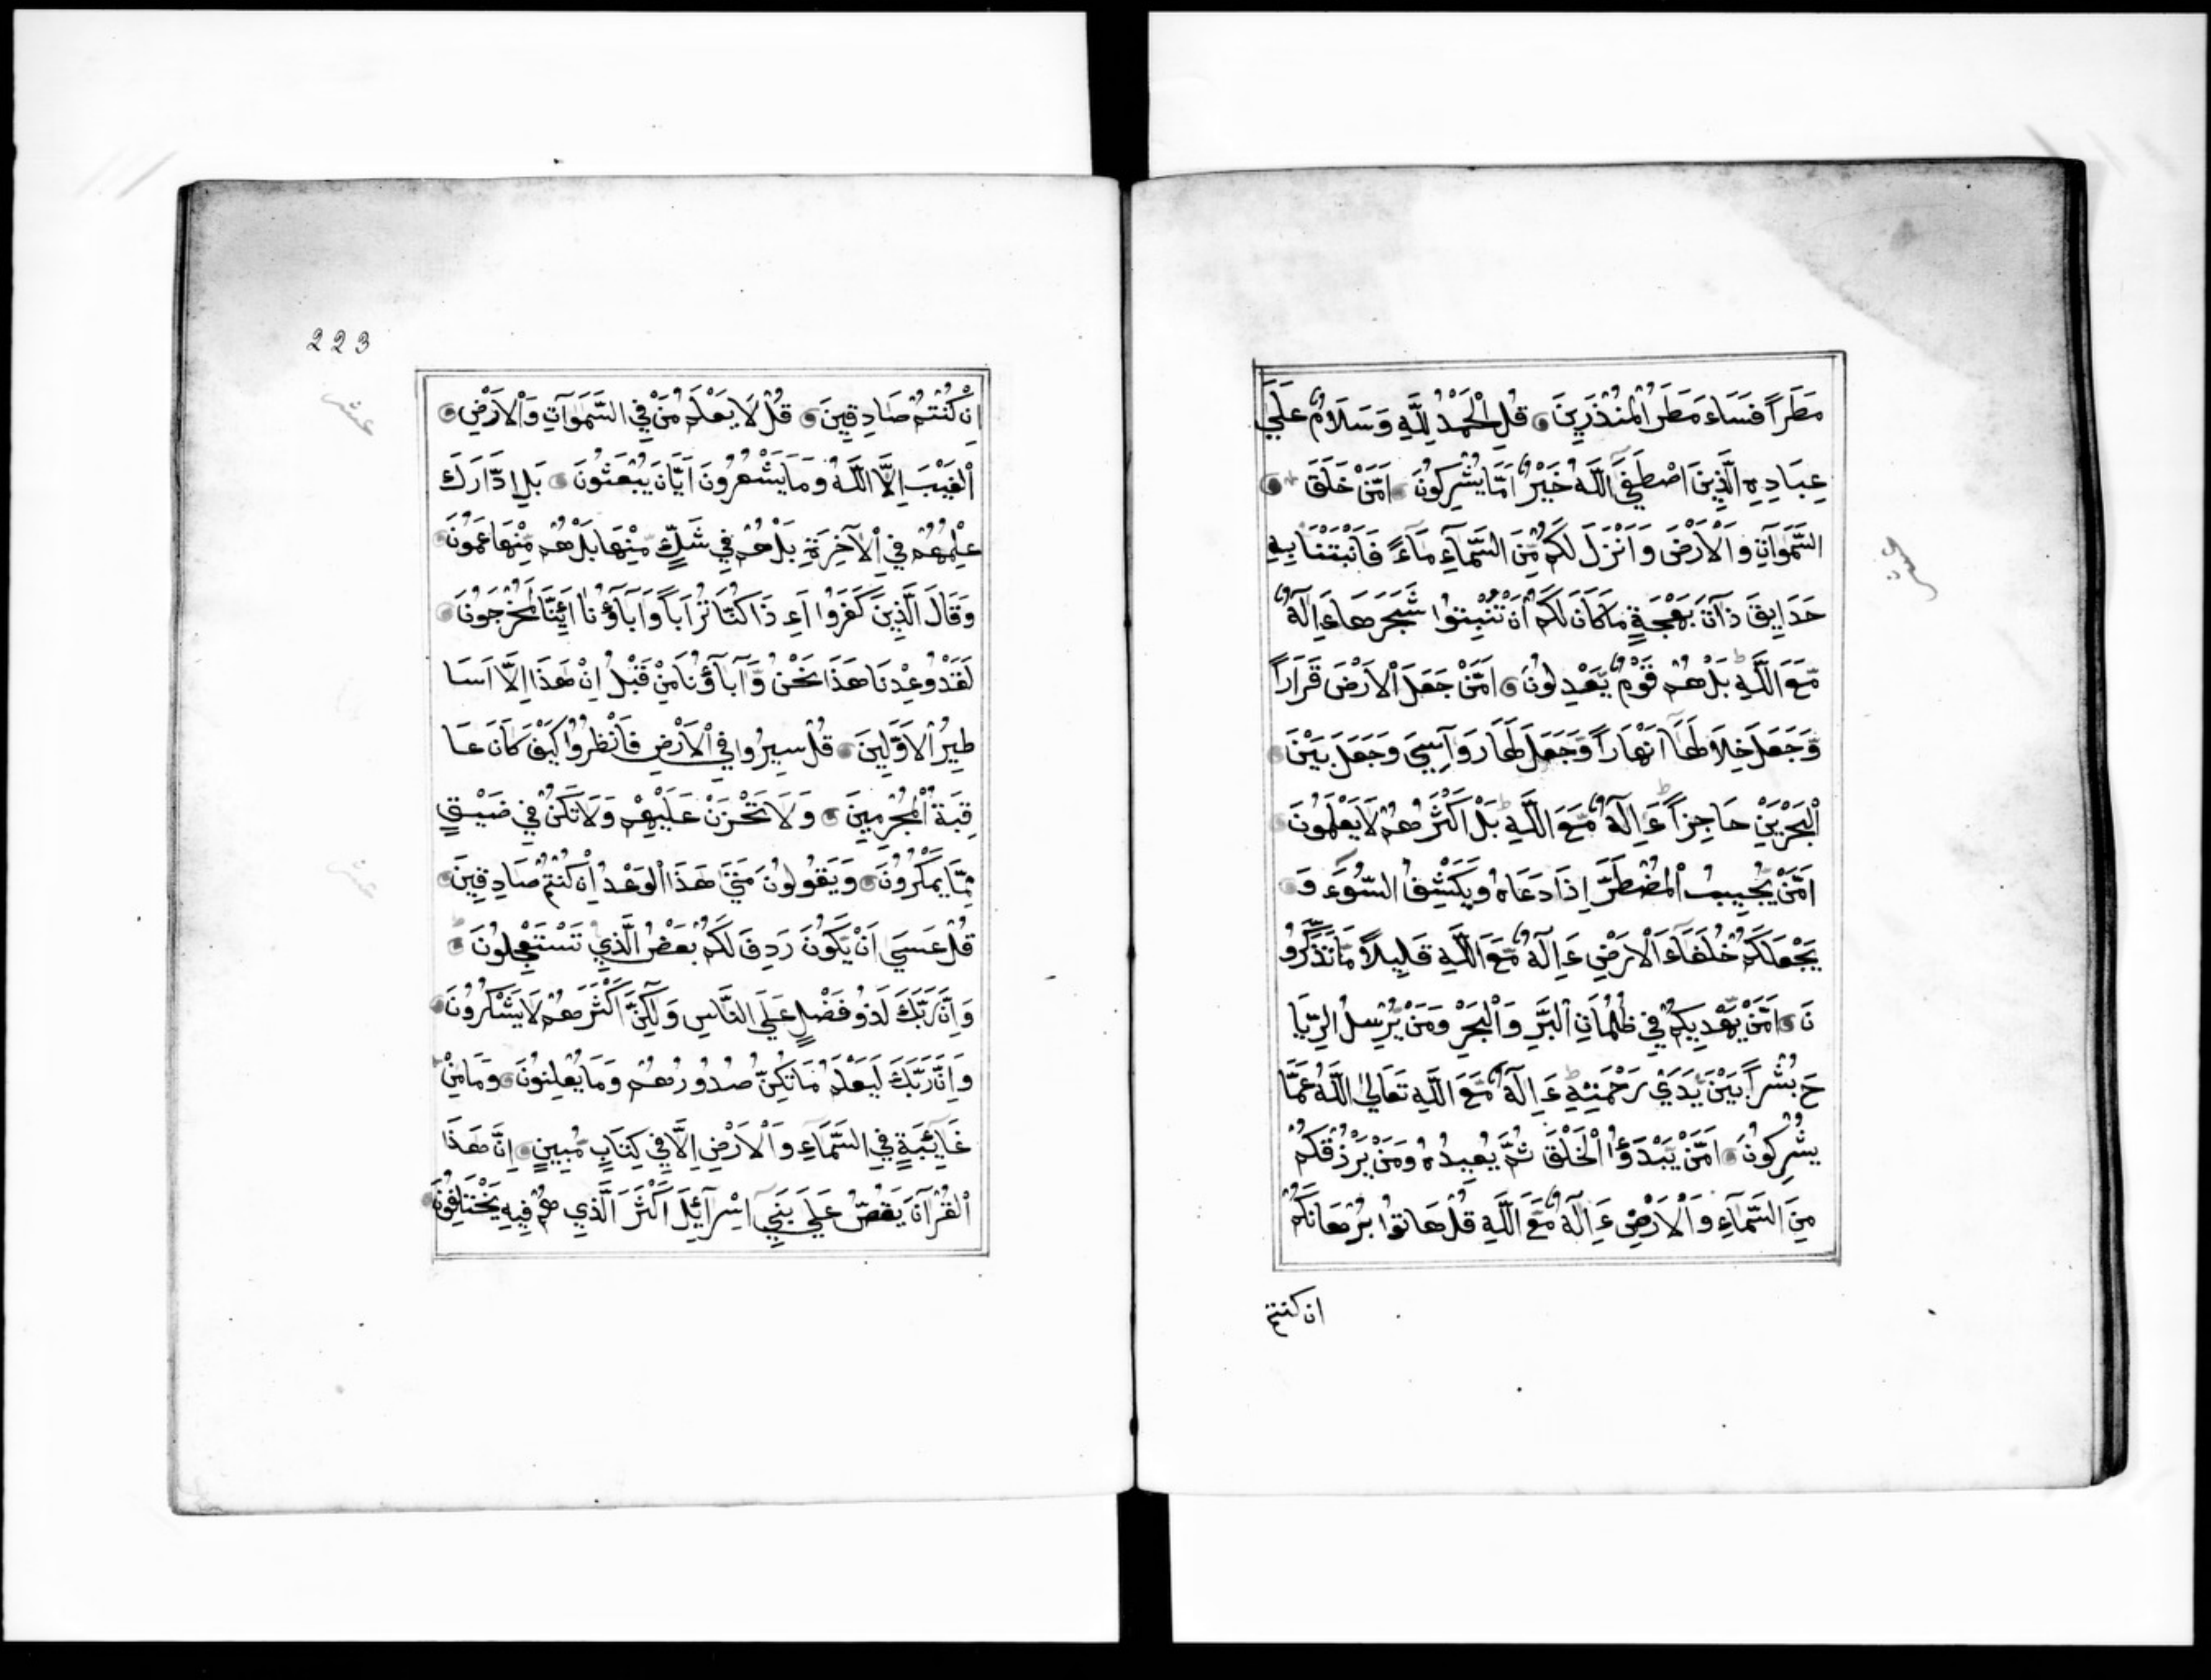 مَطَرَاً فَسَاءَ مَطَرُ الْمُنْذَرِينَ قُلِ الْحَمْدُ لِلَّهِ وَسَلَامٌ عَلَي
عِبَادِهِ الَّذِينَ اصْطَفَي اللَّهُ خَيْرٌ اَمَّا يُشْرِكُونَ اَمَّنْ خَلَقَ
السَّمَوَاتِ وَالْاَرْضَ وَاَنْزَلَ لَكُمْ مِّنَ السَّمَآءِ مَآءً فَاَنْبَتْنَا بِهِ
حَدَايِقَ ذَاتَ بَهْجَةٍ مَا كَانَ لَكُمْ اَنْ تُنْبِتُوا شَجَرَهَا ءَاِلَهٌ
مَّعَ اللَّهِ بَلْ هُمْ قَوْمٌ يَّعْدِلُونَ اَمَّنْ جَعَلَ الْاَرْضَ قَرَارَاً
وَّجَعَلَ خِلَالَهَآ اَنْهَارَاً وَّجَعَلَ لَهَا رَوَآسِيَ وَجَعَلَ بَيْنَ
الْبَحْرَيْنِ حَاجِزَاً ءَاِلَهٌ مَّعَ اللَّهِ بَلْ اَكْثَرُهُمْ لَا يَعْلَمُونَ
اَمَّنْ يُّجِيبُ الْمُضْطَرَّ اِذَا دَعَاهُ وَيَكْشِفُ السُّوءَ وَ
يَجْعَلُكُمْ خُلَفَآءَ الْاَرْضِ ءَاِلَهٌ مَّعَ اللَّهِ قَلِيلاً مَّا تَذَكَّرُو
نَ اَمَّنْ يَّهْدِيكُمْ فِي ظُلُمَاتِ الْبَرِّ وَالْبَحْرِ وَمَنْ يُّرْسِلُ الرِّيَا
حَ بُشْرَاً بَيْنَ يَدَيْ رَحْمَتِهِ ءَاِلَهٌ مَّعَ اللَّهِ تَعَالَي اللَّهُ عَمَّا
يُشْرِكُونَ اَمَّنْ يَّبْدَؤُا الْخَلْقَ ثُمَّ يُعِيدُهُ وَمَنْ يَرْزُقُكُمْ
مِنَ السَّمَآءِ وَالْاَرْضِ ءَاِلَهٌ مَّعَ اللَّهِ قُلْ هَاتُوا بُرْهَانَكُمْ
ان كنتم
223
اِنْ كُنْتُمْ صَادِقِينَ قُلْ لَا يَعْلَمُ مَنْ فِي السَّمَوَاتِ وَالْاَرْضِ
الْغَيْبَ اِلَّا اللَّهُ وَمَا يَشْعُرُونَ اَيَّانَ يُبْعَثُونَ بَلِ ادَّارَكَ
عِلْمُهُمْ فِي الْآخِرَةِ بَلْ هُمْ فِي شَكٍّ مِّنْهَا بَلْ هُمْ مِّنْهَا عَمُونَ
وَقَالَ الَّذِينَ كَفَرُوا اَءِذَا كُنَّا تُرَابَاً وَّاَبَآؤُنَا اَئِنَّا لَمُخْرَجُونَ
لَقَدْ وُعِدْنَا هَذَا نَحْنُ وَآبَآؤُنَا مِنْ قَبْلُ اِنْ هَذَا اِلَّا اَسَا
طِيرُ الْاَوَّلِينَ قُلْ سِيرُوا فِي الْاَرْضِ فَانْظُرُوا كَيْفَ كَانَ عَا
قِبَةُ الْمُجْرِمِينَ وَلَا تَحْزَنْ عَلَيْهِمْ وَلَا تَكُنْ فِي ضَيْقٍ
مِّمَّا يَمْكُرُونَ وَيَقُولُونَ مَتَي هَذَا الْوَعْدُ اِنْ كُنْتُمْ صَادِقِينَ
قُلْ عَسَي اَنْ يَّكُونَ رَدِفَ لَكُمْ بَعْضُ الَّذِي تَسْتَعْجِلُونَ
وَاِنَّ رَبَّكَ لَذُو فَضْلٍ عَلَي النَّاسِ وَلَكِنَّ اَكْثَرَهُمْ لَا يَشْكُرُونَ
وَاِنَّ رَبَّكَ لَيَعْلَمُ مَا تُكِنُّ صُدُورُهُمْ وَمَا يُعْلِنُونَ وَمَا مِنْ
غَائِبَةٍ فِي السَّمَآءِ وَالْاَرْضِ اِلَّا فِي كِتَابٍ مُّبِينٍ اِنَّ هَذَا
الْقُرْآنَ يَقُصُّ عَلَي بَنِي اِسْرَآئِلَ اَكْثَرَ الَّذِي هُمْ فِيهِ يَخْتَلِفُونَ
عشر